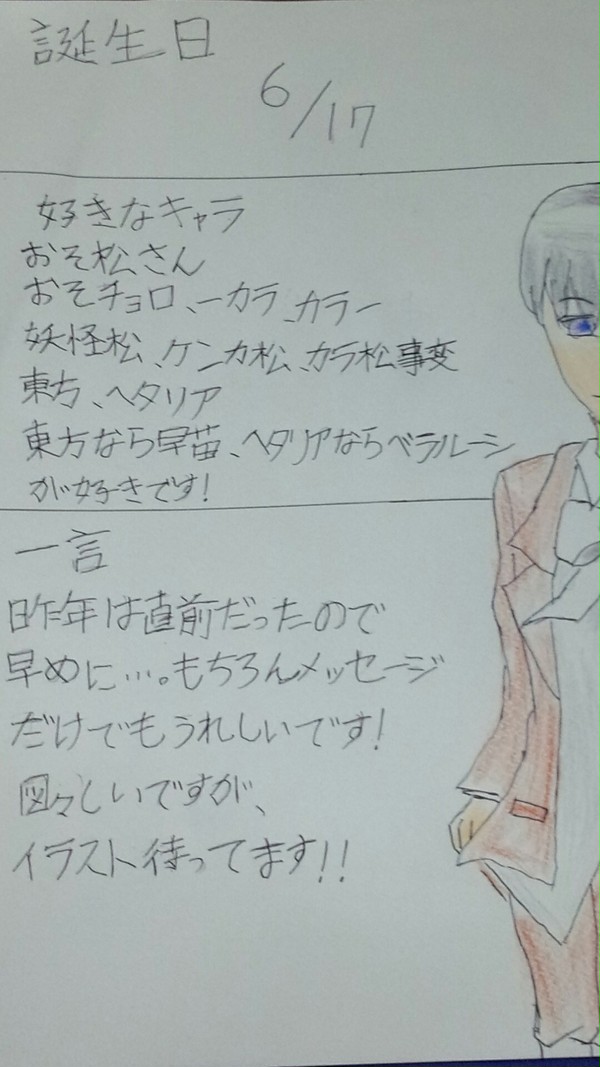 誕生日
6/17
好きなキャラ
おそ松さん
おそチョロ、一カラ、カラ一
妖怪松、ケンカ松、カラ松事変
東方、ヘタリア
東方なら早苗、ヘタリアならベラルーシ
が好きです!
一言
昨年は直前だったので
早めに…。もちろんメッセージ
だけでもうれしいです!
図々しいですが、
イラスト待ってます!!